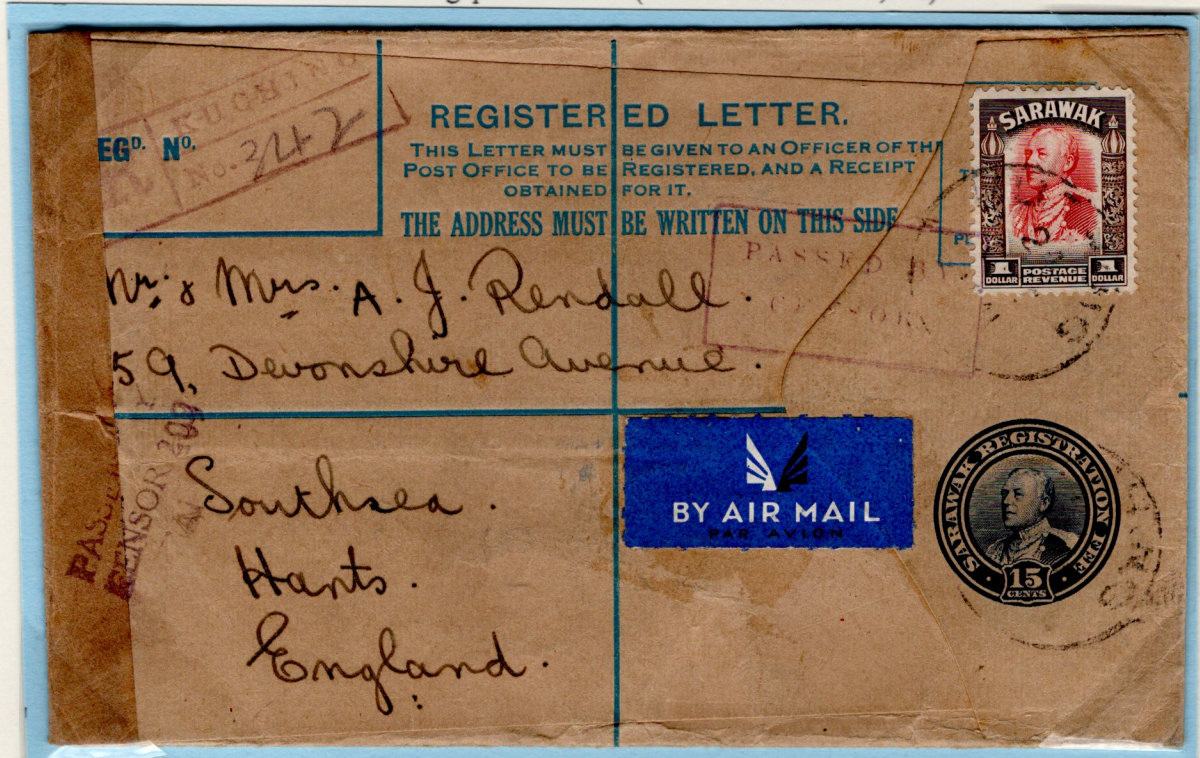 KUCHING
R No. 342
EGD. No.
REGISTERED LETTER.
THIS LETTER MUST BE GIVEN TO AN OFFICER OF TH
POST OFFICE TO BE REGISTERED, AND A RECEIPT
OBTAINED FOR IT.
THE ADDRESS MUST BE WRITTEN ON THIS SIDE
SARAWAK
1 DOLLAR POSTAGE REVENUE 1 DOLLAR
PASSED BY
CENSOR
Mr. & Mrs A. J. Rendall.
59, Devonshire Avenue.
Southsea.
Hants.
England.
BY AIR MAIL
PAR AVION
SARAWAK REGISTRATION FEE
15
CENTS